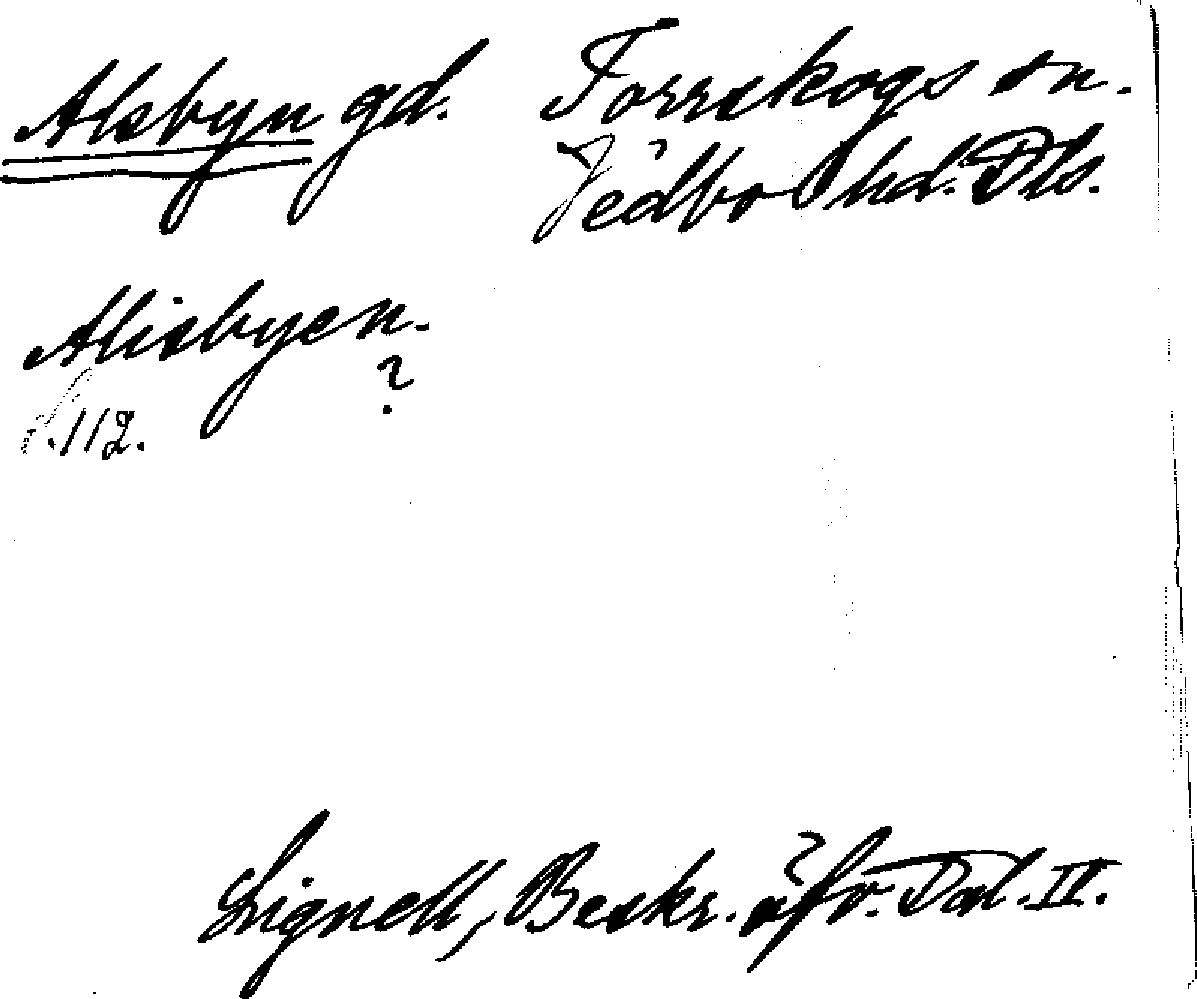 Alsbyn gd. Torrskogs sn.
Vedbo hd. Dls.
Alisbyen.
?
S. 112.
Lignell, Beskr. öfv. Dal. II.